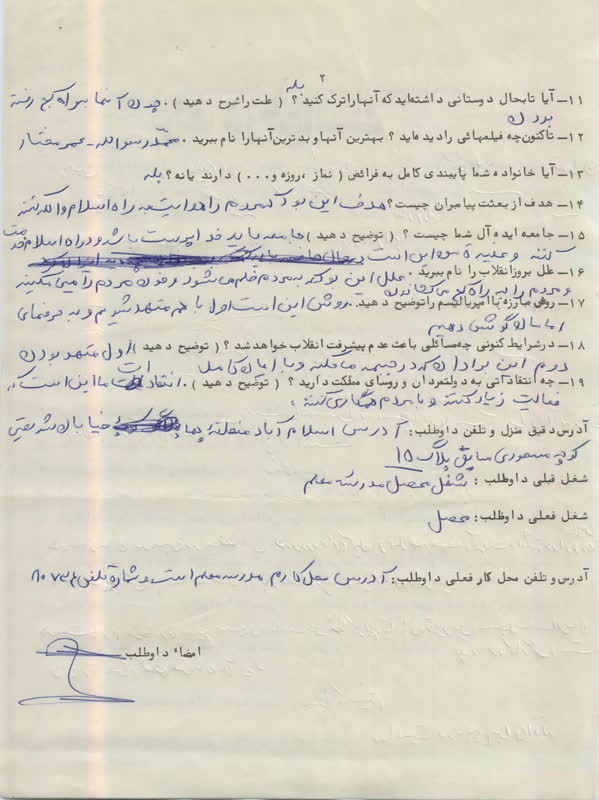 ۲
۱۱ـ آیا تابحال دوستانی داشته‌اید که آنها را ترک کنید؟ بله ( علت را شرح دهید ). چون آنها براه کج رفته
بودن
۱۲ـ تاکنون چه فیلمهائی را دیده‌اید ؟ بهترین آنها و بدترین آنها را نام ببرید . محمد رسول الله ـ عمر مختار
۱۳ـ آیا خانواده شما پایبندی کامل به فرائض ( نماز ، روزه و . . . ) دارند یانه ؟ بله
۱۴ـ هدف از بعثت پیامبران چیست ؟ هدف این بود که مردم را هدایت به راه اسلام و الله کنه
۱۵ـ جامعه ایده آل شما چیست ؟ ( توضیح دهید ) جامعه باید خدا پرست باشد و در راه اسلام خدمت
کنند و عقیده من این است
۱۶ـ علل بروز انقلاب را نام ببرید . علل این بود که به مردم ظلم می شود و خون مردم را می مکیند
و مردم را به راه
۱۷ـ روش مبارزه با امپریالیسم را توضیح دهید . روش این است اول با هم متحد شویم و به حرفهای
امام گوش دهیم
۱۸ـ در شرایط کنونی چه مسائلی باعث عدم پیشرفت انقلاب خواهد شد ؟ ( توضیح دهید ) اول متحد بودن
دوم این برادران که در جبهه
۱۹ـ چه انتقاداتی به دولتمردان و روسای مملکت دارید ؟ ( توضیح دهید ) . انتقاد ما این است که
فعالیت زیاد کنند و با مردم همکاری کنند .
آدرس دقیق منزل و تلفن داوطلب : آدرس اسلام آباد منطقه خیابان شریعتی
کوچه منصوری سابق پلاک ۱۵
شغل قبلی داوطلب : شغل محصل مدرسه معلم
شغل فعلی داوطلب : محصل
آدرس و تلفن محل کار فعلی داوطلب : آدرس محل کارم مدرسه معلم است و شماره تلفن
امضاء داوطلب